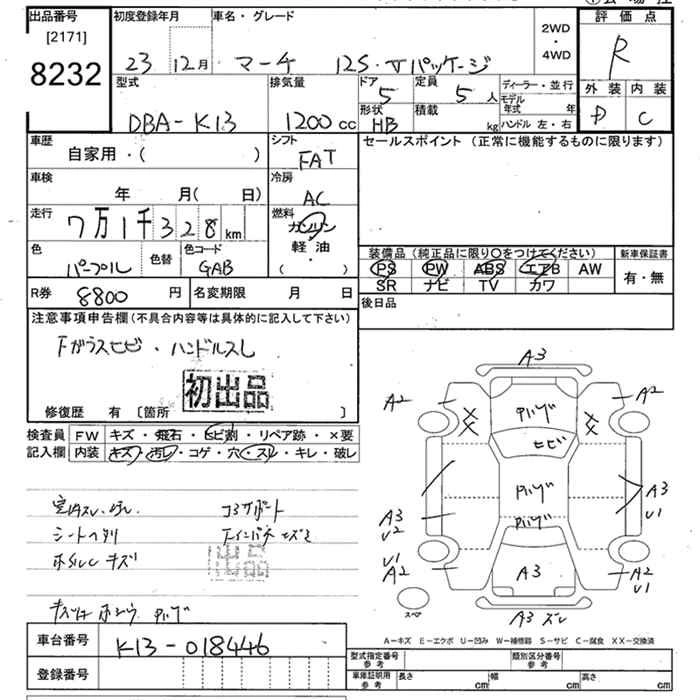 出品番号
[2171]
8232
初度登録年月
23 12月
車名・グレード
マーチ 12S・Vパッケージ
2WD
・
4WD
評価点
R
外装 内装
D C
型式
DBA-K13
排気量
1200cc
ドア
5
定員
5人
ディーラー・並行
モデル年式 年
形状
HB
積載
kg
ハンドル 左・右
車歴
自家用・( )
シフト
FAT
セールスポイント (正常に機能するものに限ります)
車検
年 月( 日)
冷房
AC
走行
7万1千328km
燃料
ガソリン
軽・油
( )
色
パープル
色替
色コード
GAB
装備品 (純正品に限り○をつけてください)
新車保証書
PS PW ABS エアB AW
SR ナビ TV カワ
有・無
R券
8800円
名変期限 月 日
後日品
注意事項申告欄(不具合内容等は具体的に記入して下さい)
Fガラスヒビ・ハンドルスレ
初出品
修復歴 有 〔箇所 〕
検査員記入欄
FW キズ・飛石・ヒビ割・リペア跡・×要
内装 キズ・汚レ・コゲ・穴・スレ・キレ・破レ
コアサポート
出品
A3
A2
A2
ヒビ
A3
U2
A3
U1
U1
A2
A2
U1
A3
A3 ズレ
スペア
A-キズ E-エクボ U-凹み W-補修跡 S-サビ C-腐食 XX-交換済
車台番号
K13-018446
登録番号
型式指定番号 参考
類別区分番号 参考
車庫証明用 参考
長さ cm
幅 cm
高さ cm